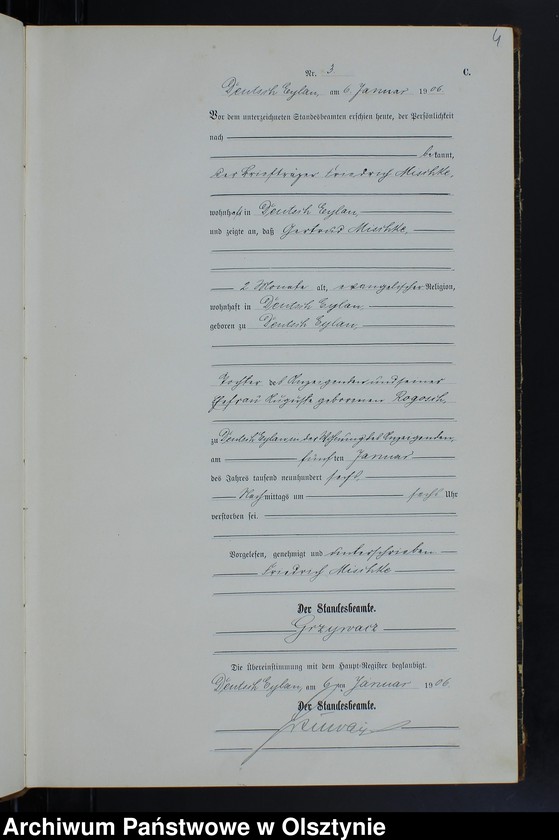 4
Nr. 3 C.
Deutsch Eylau, am 6. Januar 1906.
Vor dem unterzeichneten Standesbeamten erschien heute, der Persönlichkeit
nach
bekannt,
der Briefträger Friedrich Mischke,
wohnhaft in Deutsch Eylau,
und zeigte an, daß Gertrud Mischke,
2 Monate alt, evangelischer Religion,
wohnhaft in Deutsch Eylau,
geboren zu Deutsch Eylau,
Tochter des Anzeigenden und seiner
Ehefrau Auguste geborenen Rogosch,
zu Deutsch Eylau in der Wohnung des Anzeigenden,
am fünften Januar
des Jahres tausend neunhundert sechs
Nachmittags um sechs Uhr
verstorben sei.
Vorgelesen, genehmigt und unterschrieben
Friedrich Mischke
Der Standesbeamte.
Grzywacz
Die Übereinstimmung mit dem Haupt-Register beglaubigt.
Deutsch Eylau, am 6ten Januar 1906.
Der Standesbeamte.
Archiwum Państwowe w Olsztynie